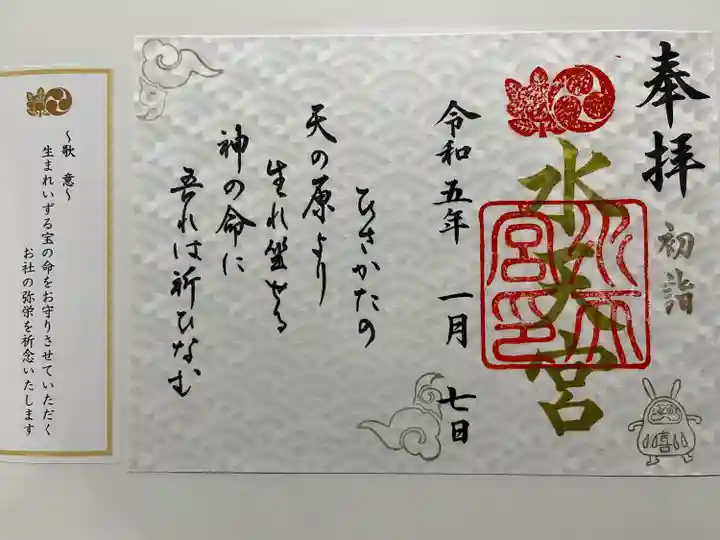 奉拝
初詣
水天宮
水天宮印
喜
令和五年 一月 七日
ひさかたの
天の原より
生れ坐せる
神の命に
吾れは祈ひなむ
〜歌 意〜
生まれいずる宝の命をお守りさせていただく
お社の弥栄を祈念いたします